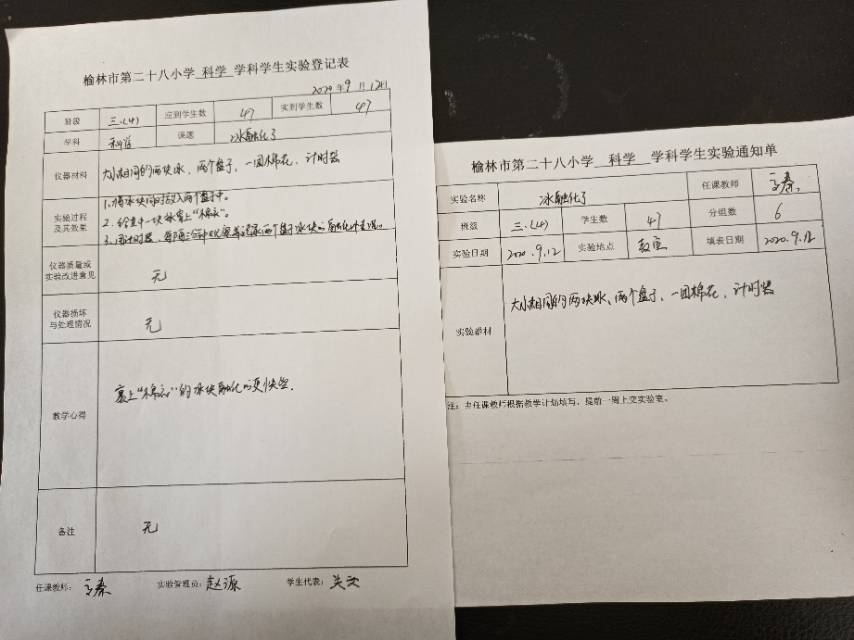 榆林市第二十八小学 科学 学科学生实验登记表
2020年9月12日
班级 三.(4) 应到学生数 47 实到学生数 47
学科 科学 课题 冰融化了
仪器材料 大小相同的两块冰、两个盘子、一团棉花、计时器
实验过程及其效果
1.将冰块同时放入两个盘子中。
2.给其中一块冰裹上“棉衣”。
3.用计时器,每隔三分钟观察并记录两个盘子冰块的融化情况。
仪器质量或实验改进意见 无
仪器损坏与处理情况 无
教学心得 裹上“棉衣”的冰块融化的更快些.
备注 无
任课教师: 实验管理员:赵源 学生代表:
榆林市第二十八小学 科学 学科学生实验通知单
实验名称 冰融化了 任课教师
班级 三.(4) 学生数 47 分组数 6
实验日期 2020.9.12 实验地点 教室 填表日期 2020.9.12
实验器材 大小相同的两块冰、两个盘子、一团棉花、计时器
注:由任课教师根据教学计划填写,提前一周上交实验室。